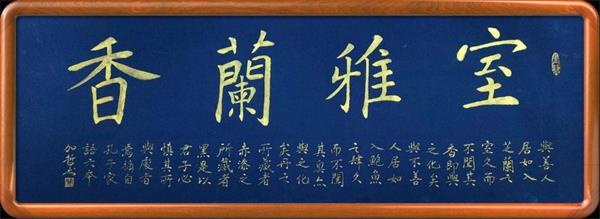 室雅蘭香
與善人
居如入
芝蘭之
室久而
不聞其
香即與
之化矣
與不善
人居如
入鮑魚
之肆久
而不聞
其臭亦
與之化
矣丹之
所藏者
赤漆之
所藏者
黑是以
君子必
慎其所
與處者
焉摘自
孔子家
語六本
加哲